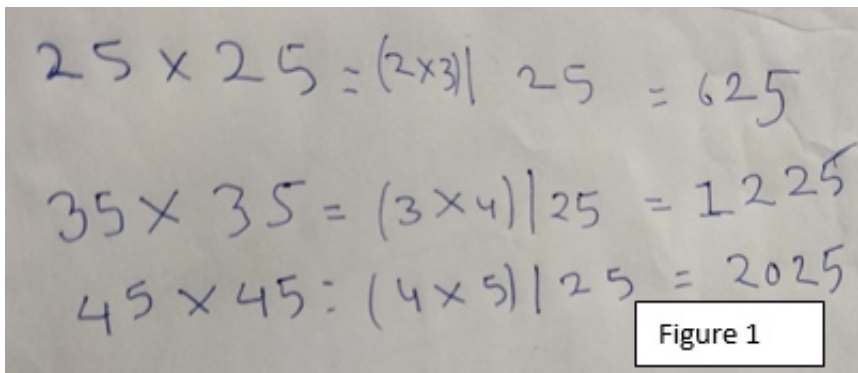 25 × 25 = (2×3)| 25 = 625
35 × 35 = (3×4)|25 = 1225
45 × 45 : (4 × 5)|25 = 2025
Figure 1